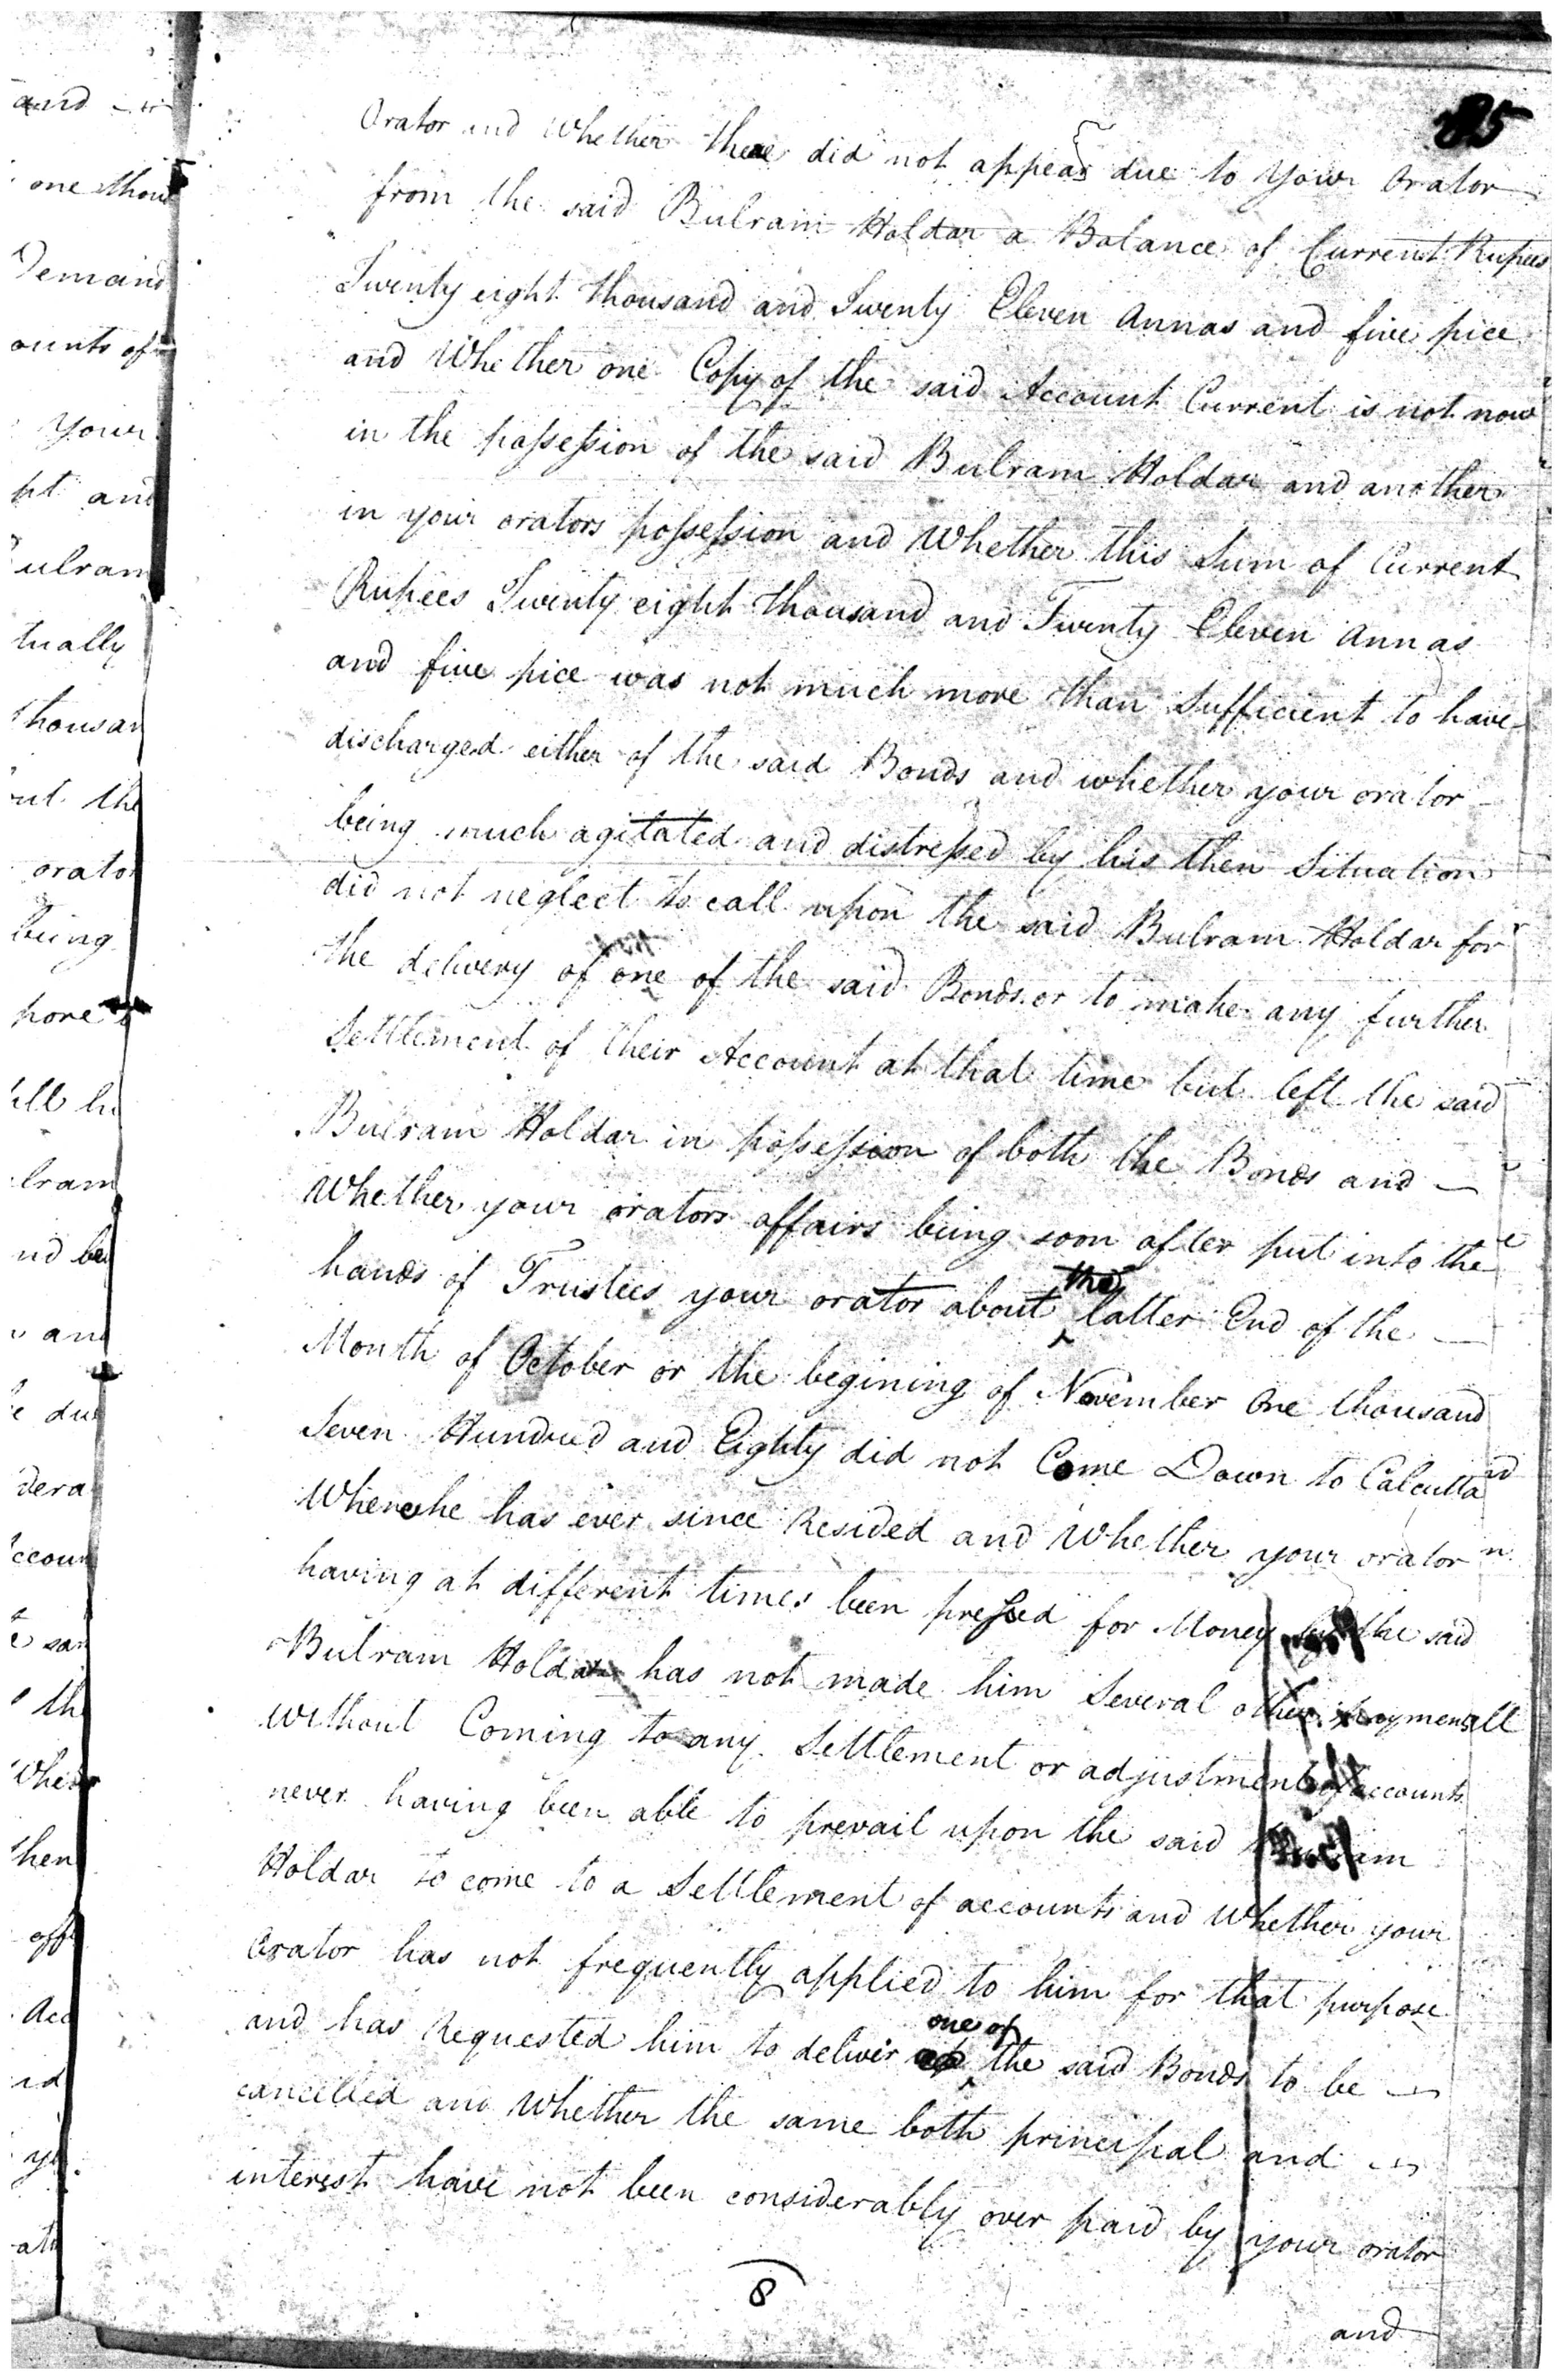 85
Orator and Whether there did not appear due to Your Orator
from the said Bulram Holdar a Balance of Current Rupees
Twenty eight thousand and Twenty Eleven Annas and five pice
and Whether one Copy of the said Account Current is not now
in the possession of the said Bulram Holdar and another
in your orators possession and Whether this Sum of Current
Rupees Twenty eight thousand and Twenty Eleven annas
and five pice was not much more than Sufficient to have
discharged either of the said Bonds and whether your orator
being much agitated and distressed by his then Situation
did not neglect to call upon the said Bulram Holdar for
the delivery of one of the said Bonds or to make any further
Settlement of their Account at that time but left the said
Bulram Holdar in possession of both the Bonds and —
Whether your orators affairs being soon after put into the
hands of Trustees your orator about the latter End of the —
Month of October or the begining of November One thousand
Seven Hundred and Eighty did not Come Down to Calcutta
Where he has ever since Resided and Whether your orator
having at different times been pressed for Money by the said
Bulram Holdar has not made him Several other payments all
without Coming to any Settlement or adjustment of accounts
never having been able to prevail upon the said Bulram
Holdar to come to a Settlement of accounts and Whether your
Orator has not frequently applied to him for that purpose
and has Requested him to deliver one of the said Bonds to be —
cancelled and Whether the same both principal and —
interest have not been considerably over paid by your orator
8
and